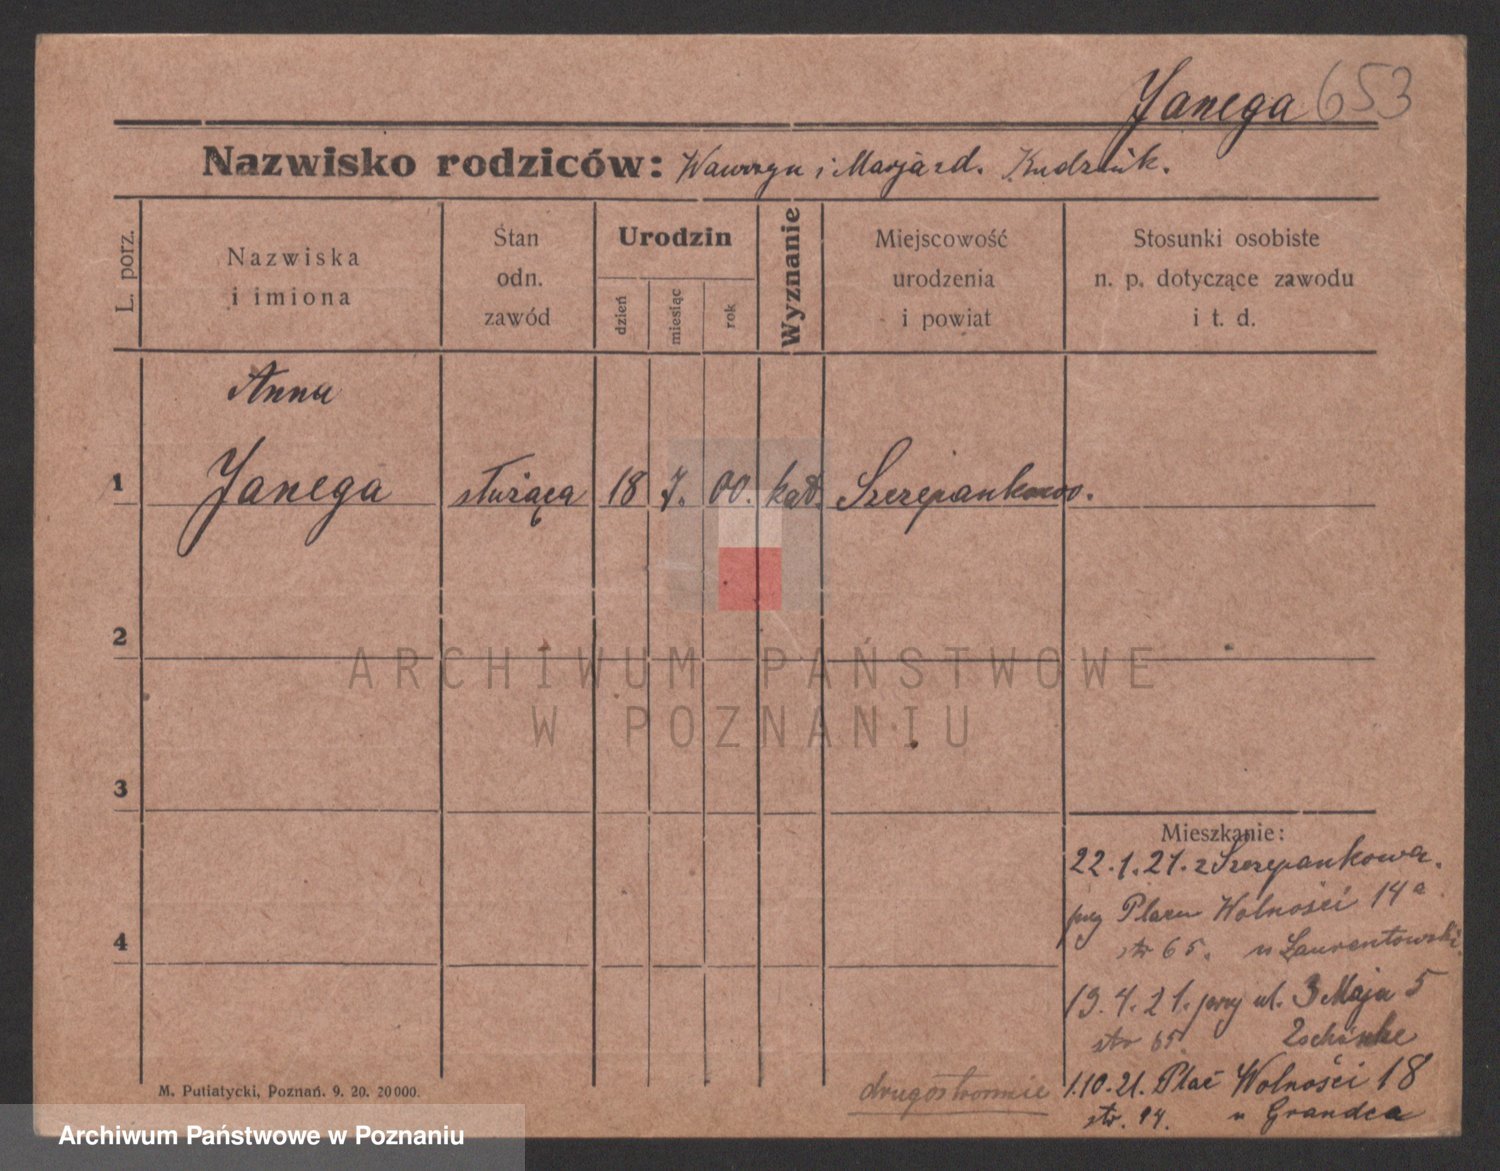 Janega 653
Nazwisko rodziców: Wawrzyn i Marja zd. Kudzink.
L. porz.
Nazwiska
i imiona
Stan
odn.
zawód
Urodzin
dzień
miesiąc
rok
Wyznanie
Miejscowość
urodzenia
i powiat
Stosunki osobiste
n. p. dotyczące zawodu
i t. d.
Anna
1 Janega służąca 18 7. 00. kat. Szczepankowo.
2
ARCHIWUM PAŃSTWOWE
W POZNANIU
3
Mieszkanie:
22.1.21. z Szczepankowa.
przy Placu Wolności 14a
str 65. u Laurentowski
13.4.21. przy ul. 3 Maja 5
str 65
4
1.10.21. Plac Wolności 18
str. 94. u Grandca
drugostronnie
M. Putiatycki, Poznań. 9. 20. 20 000.
Archiwum Państwowe w Poznaniu